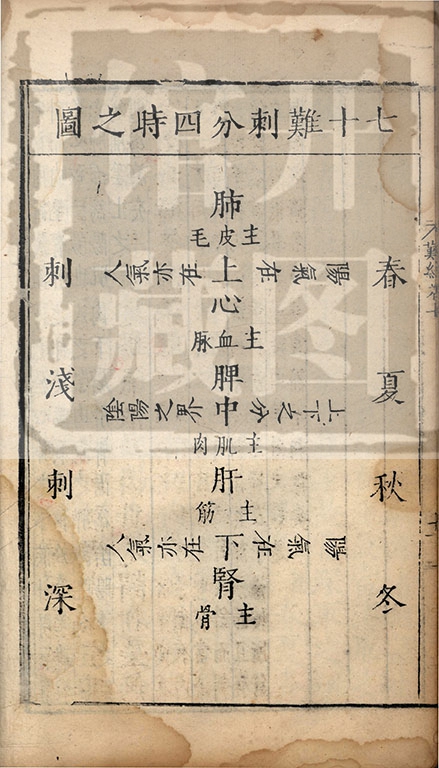 七十難刺分四時之圖
春夏
秋冬
肺
主皮毛
陽氣在上人氣亦在
心
主血脉
脾
上下之分中陰陽之界
主肌肉
肝
主筋
陽氣在下人氣亦在
腎
主骨
刺淺
刺深